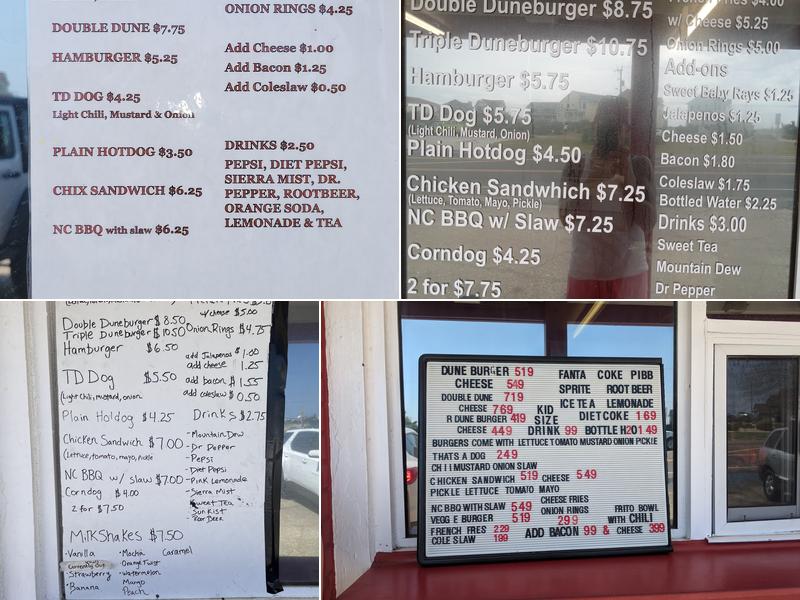 ONION RINGS $4.25
DOUBLE DUNE $7.75
HAMBURGER $5.25
TD DOG $4.25
Light Chili, Mustard & Onion
PLAIN HOTDOG $3.50
CHIX SANDWICH $6.25
NC BBQ with slaw $6.25
Add Cheese $1.00
Add Bacon $1.25
Add Coleslaw $0.50
DRINKS $2.50
PEPSI, DIET PEPSI,
SIERRA MIST, DR.
PEPPER, ROOTBEER,
ORANGE SODA,
LEMONADE & TEA
Double Duneburger $8.75
Triple Duneburger $10.75
Hamburger $5.75
TD Dog $5.75
(Light Chili, Mustard, Onion)
Plain Hotdog $4.50
Chicken Sandwhich $7.25
(Lettuce, Tomato, Mayo, Pickle)
NC BBQ w/ Slaw $7.25
Corndog $4.25
2 for $7.75
w/ Cheese $5.25
Onion Rings $5.00
Add-ons
Sweet Baby Rays $1.25
Jalapenos $1.25
Cheese $1.50
Bacon $1.80
Coleslaw $1.75
Bottled Water $2.25
Drinks $3.00
Sweet Tea
Mountain Dew
Dr Pepper
Double Duneburger $8.50
Triple Duneburger $10.50
Hamburger $6.50
TD Dog $5.50
(Light Chili, mustard, onion)
Plain Hotdog $4.25
Chicken Sandwich $7.00
(Lettuce, tomato, mayo, pickle
NC BBQ w/ slaw $7.00
Corndog $4.00
2 for $7.50
MilkShakes $7.50
-Vanilla
Currently Out
-Strawberry
-Banana
-Mocha
Orange Twist
-Watermelon
Mango
Peach
Caramel
w/ cheese $5.00
Onion Rings $4.75
add Jalapenos $1.00
add cheese 1.25
add bacon $1.55
add coleslaw $0.50
Drinks $2.75
-Mountain Dew
-Dr Pepper
-Pepsi
-Diet Pepsi
-Pink Lemonade
-Sierra Mist
Sweet Tea
Sun Kist
Root Beer
DUNE BURGER 519
CHEESE 549
DOUBLE DUNE 719
CHEESE 769
R DUNE BURGER 419
CHEESE 449
KID
SIZE
DRINK 99
FANTA COKE PIBB
SPRITE ROOT BEER
ICE TEA LEMONADE
DIET COKE 169
BOTTLE H2O 149
BURGERS COME WITH LETTUCE TOMATO MUSTARD ONION PICKLE
THATS A DOG 249
CHILI MUSTARD ONION SLAW
CHICKEN SANDWICH 519 CHEESE 549
PICKLE LETTUCE TOMATO MAYO
NC BBQ WITH SLAW 549
VEGGE BURGER 519
FRENCH FRES 229
COLE SLAW 199
CHEESE FRIES
ONION RINGS
299
ADD BACON 99 & CHEESE 399
FRITO BOWL
WITH CHILI